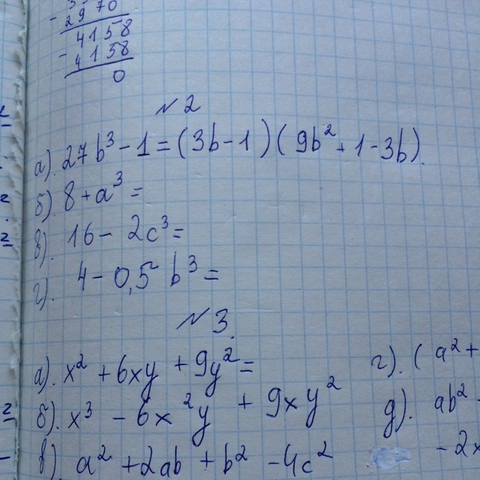 - 2970
4158
- 4158
0
№2
а). 27b³ - 1 = (3b - 1)(9b² + 1 - 3b).
б). 8 + a³ =
в). 16 - 2c³ =
г). 4 - 0,5 b³ =
№3.
а). x² + 6xy + 9y² =
г). (a² +
б). x³ - 6x²y + 9xy²
д). ab² -
в). a² + 2ab + b² - 4c²
- 2x